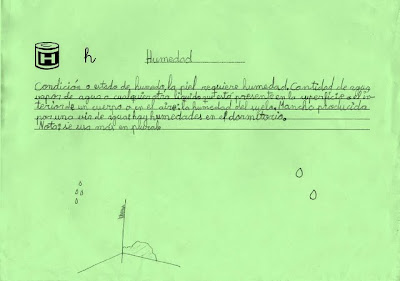 H h Humedad
Condición o estado de humedo, la piel requiere humedad. Cantidad de agua,
vapor de agua o cualquier otro líquido que está presente en la superficie o el in-
terior de un cuerpo o en el aire: la humedad del suelo. Mancha producida
por una vía de agua: hay humedades en el dormitorio.
Nota: se usa más en plural.